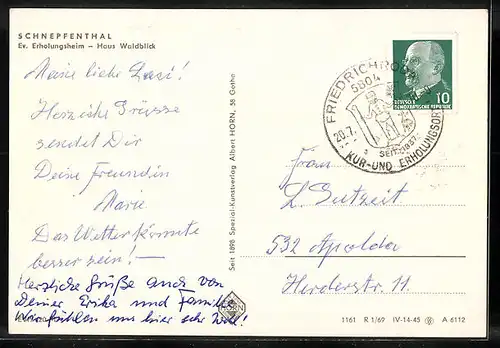 SCHNEPFENTHAL
Ev. Erholungsheim – Haus Waldblick
Meine liebe
Herzliche Grüsse
sendet Dir
Deine Freundin
Marie.
Das Wetter könnte
besser sein! –
Herzliche Grüße auch von
Deiner Erika und Familie
Wir fühlen uns hier sehr wohl!
Seit 1898 Spezial-Kunstverlag Albert HORN, 58 Gotha
HORN
FRIEDRICHRODA
5804
20.7.
SEIT 1837
KUR- UND ERHOLUNGSORT
DEUTSCHE
DEMOKRATISCHE REPUBLIK
10
Frau
L. Gutzeit
532 Apolda
Herderstr. 11.
1161 R 1/69 IV-14-45 A 6112